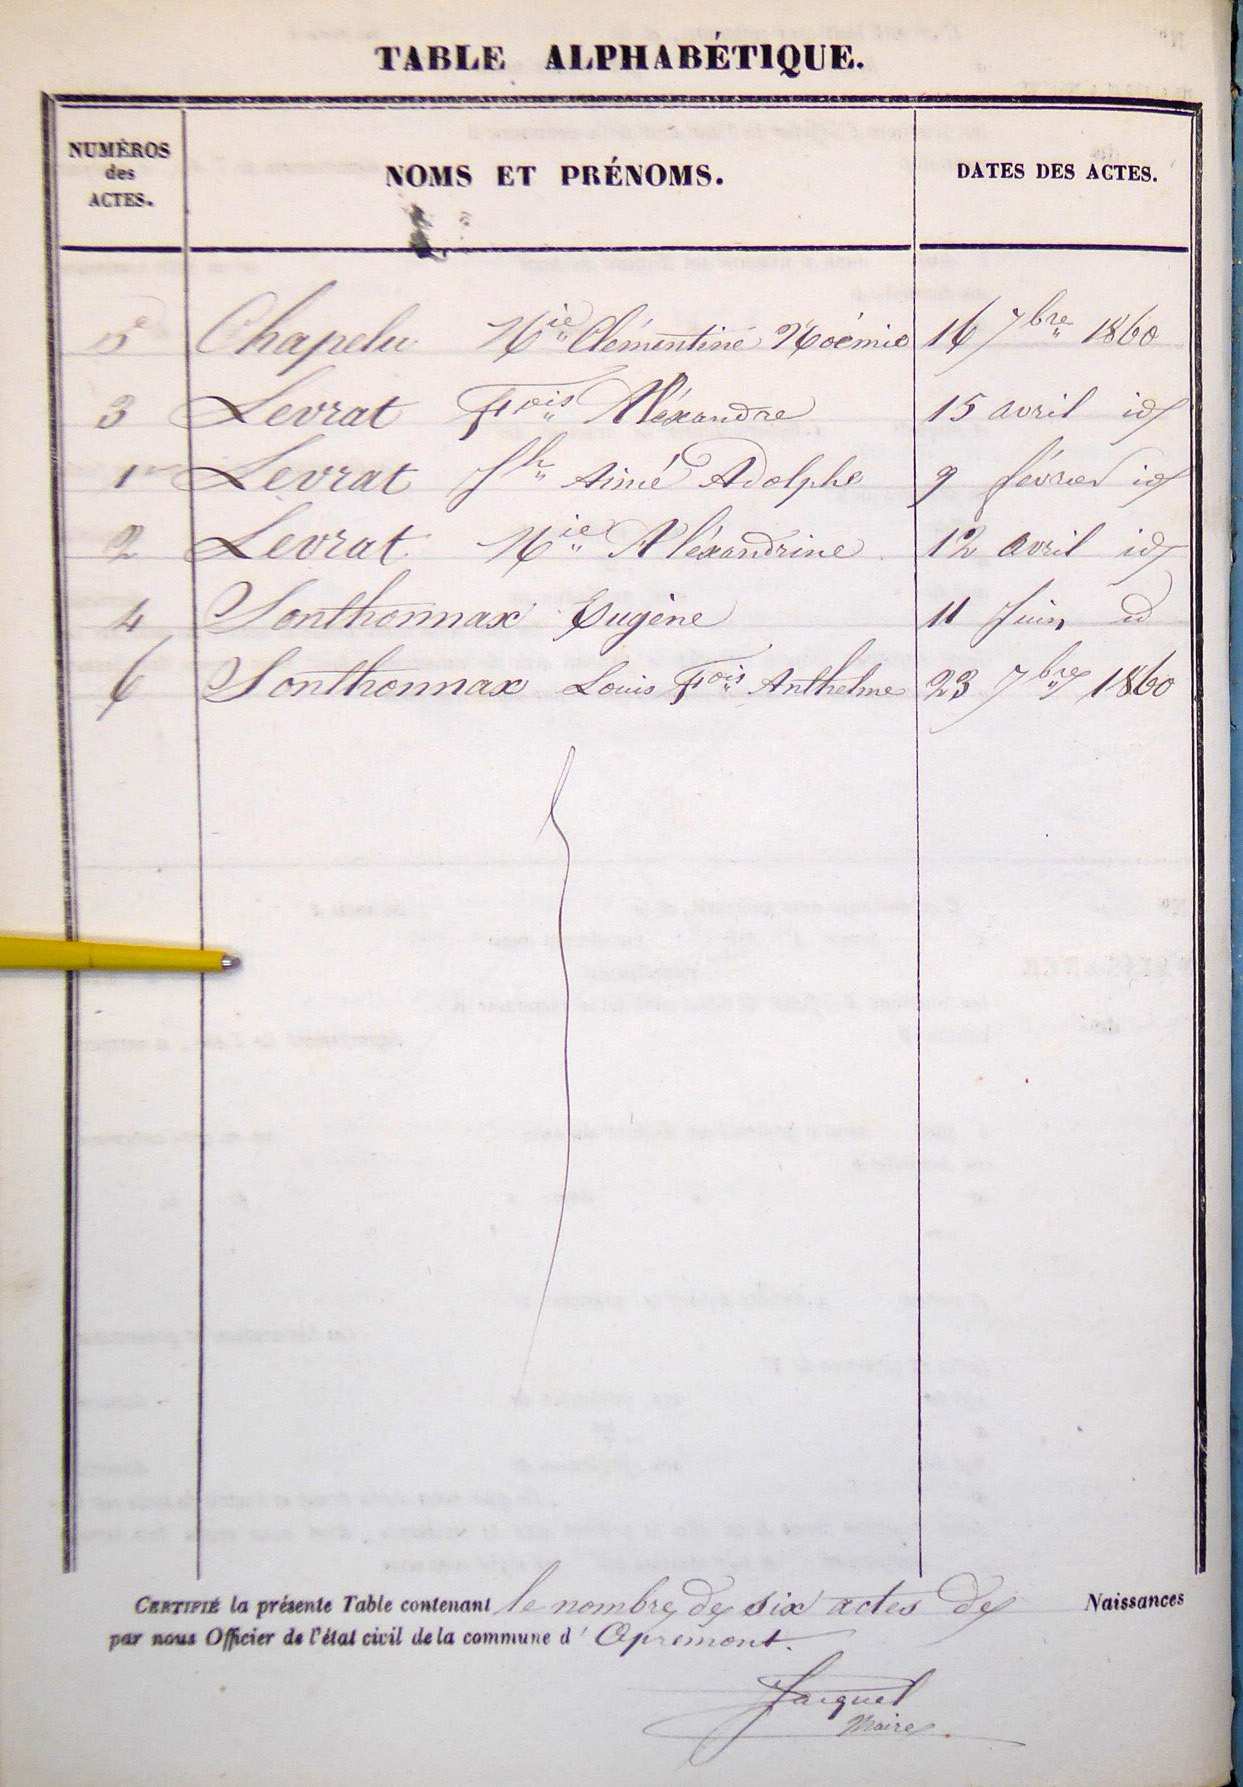 TABLE ALPHABÉTIQUE.
NUMÉROS des ACTES. NOMS ET PRÉNOMS. DATES DES ACTES.
5e Chapelu Mie Clémentine Noémie 16 7bre 1860
3 Levrat Fois Aléxandre 15 avril id
1er Levrat Jh Aimé Adolphe 9 février id
2 Levrat Mie Aléxandrine 12 avril id
4 Sonthonnax Eugène 11 Juin id
6 Sonthonnax Louis Fois Anthelme 23 7bre 1860
CERTIFIÉ la présente Table contenant le nombre de six actes de Naissances
par nous Officier de l'état civil de la commune d' Apremont.
Jacquet
Maire